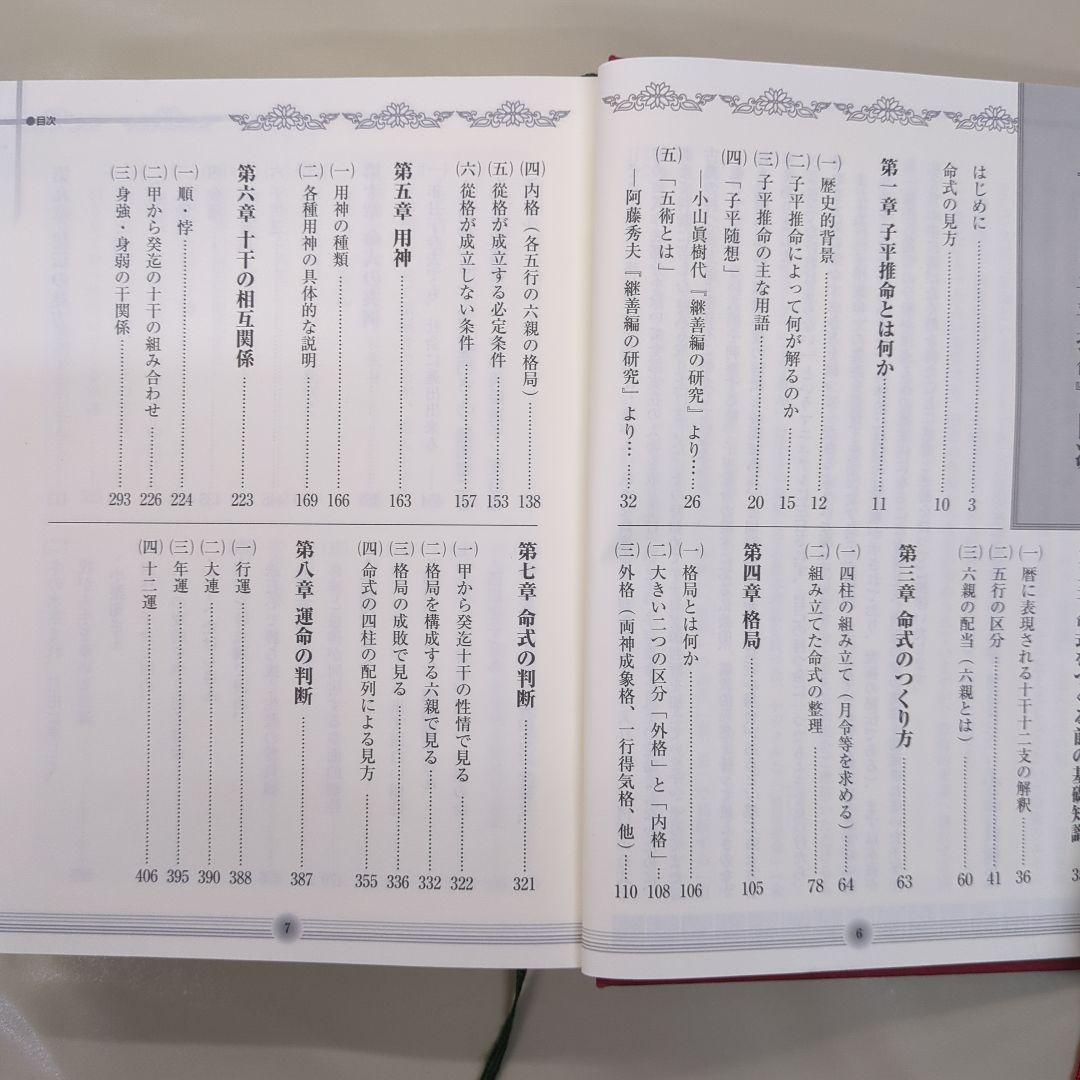 はじめに……3
命式の見方……10
第一章 子平推命とは何か……11
(一) 歴史的背景……12
(二) 子平推命によって何が解るのか……15
(三) 子平推命の主な用語……20
(四) 「子平随想」
―小山眞樹代『継善編の研究』より…26
(五) 「五術とは」
―阿藤秀夫『継善編の研究』より…32
(一) 暦に表現される十干十二支の解釈……36
(二) 五行の区分……41
(三) 六親の配当(六親とは)……60
第三章 命式のつくり方……63
(一) 四柱の組み立て(月令等を求める)……64
(二) 組み立てた命式の整理……78
第四章 格局……105
(一) 格局とは何か……106
(二) 大きい二つの区分「外格」と「内格」……108
(三) 外格(両神成象格、一行得気格、他)……110
6
●目次
(四) 内格(各五行の六親の格局)……138
(五) 従格が成立する必定条件……153
(六) 従格が成立しない条件……157
第五章 用神……163
(一) 用神の種類……166
(二) 各種用神の具体的な説明……169
第六章 十干の相互関係……223
(一) 順・悖……224
(二) 甲から癸迄の十干の組み合わせ……226
(三) 身強・身弱の干関係……293
第七章 命式の判断……321
(一) 甲から癸迄十干の性情で見る……322
(二) 格局を構成する六親で見る……332
(三) 格局の成敗で見る……336
(四) 命式の四柱の配列による見方……355
第八章 運命の判断……387
(一) 行運……388
(二) 大運……390
(三) 年運……395
(四) 十二運……406
7